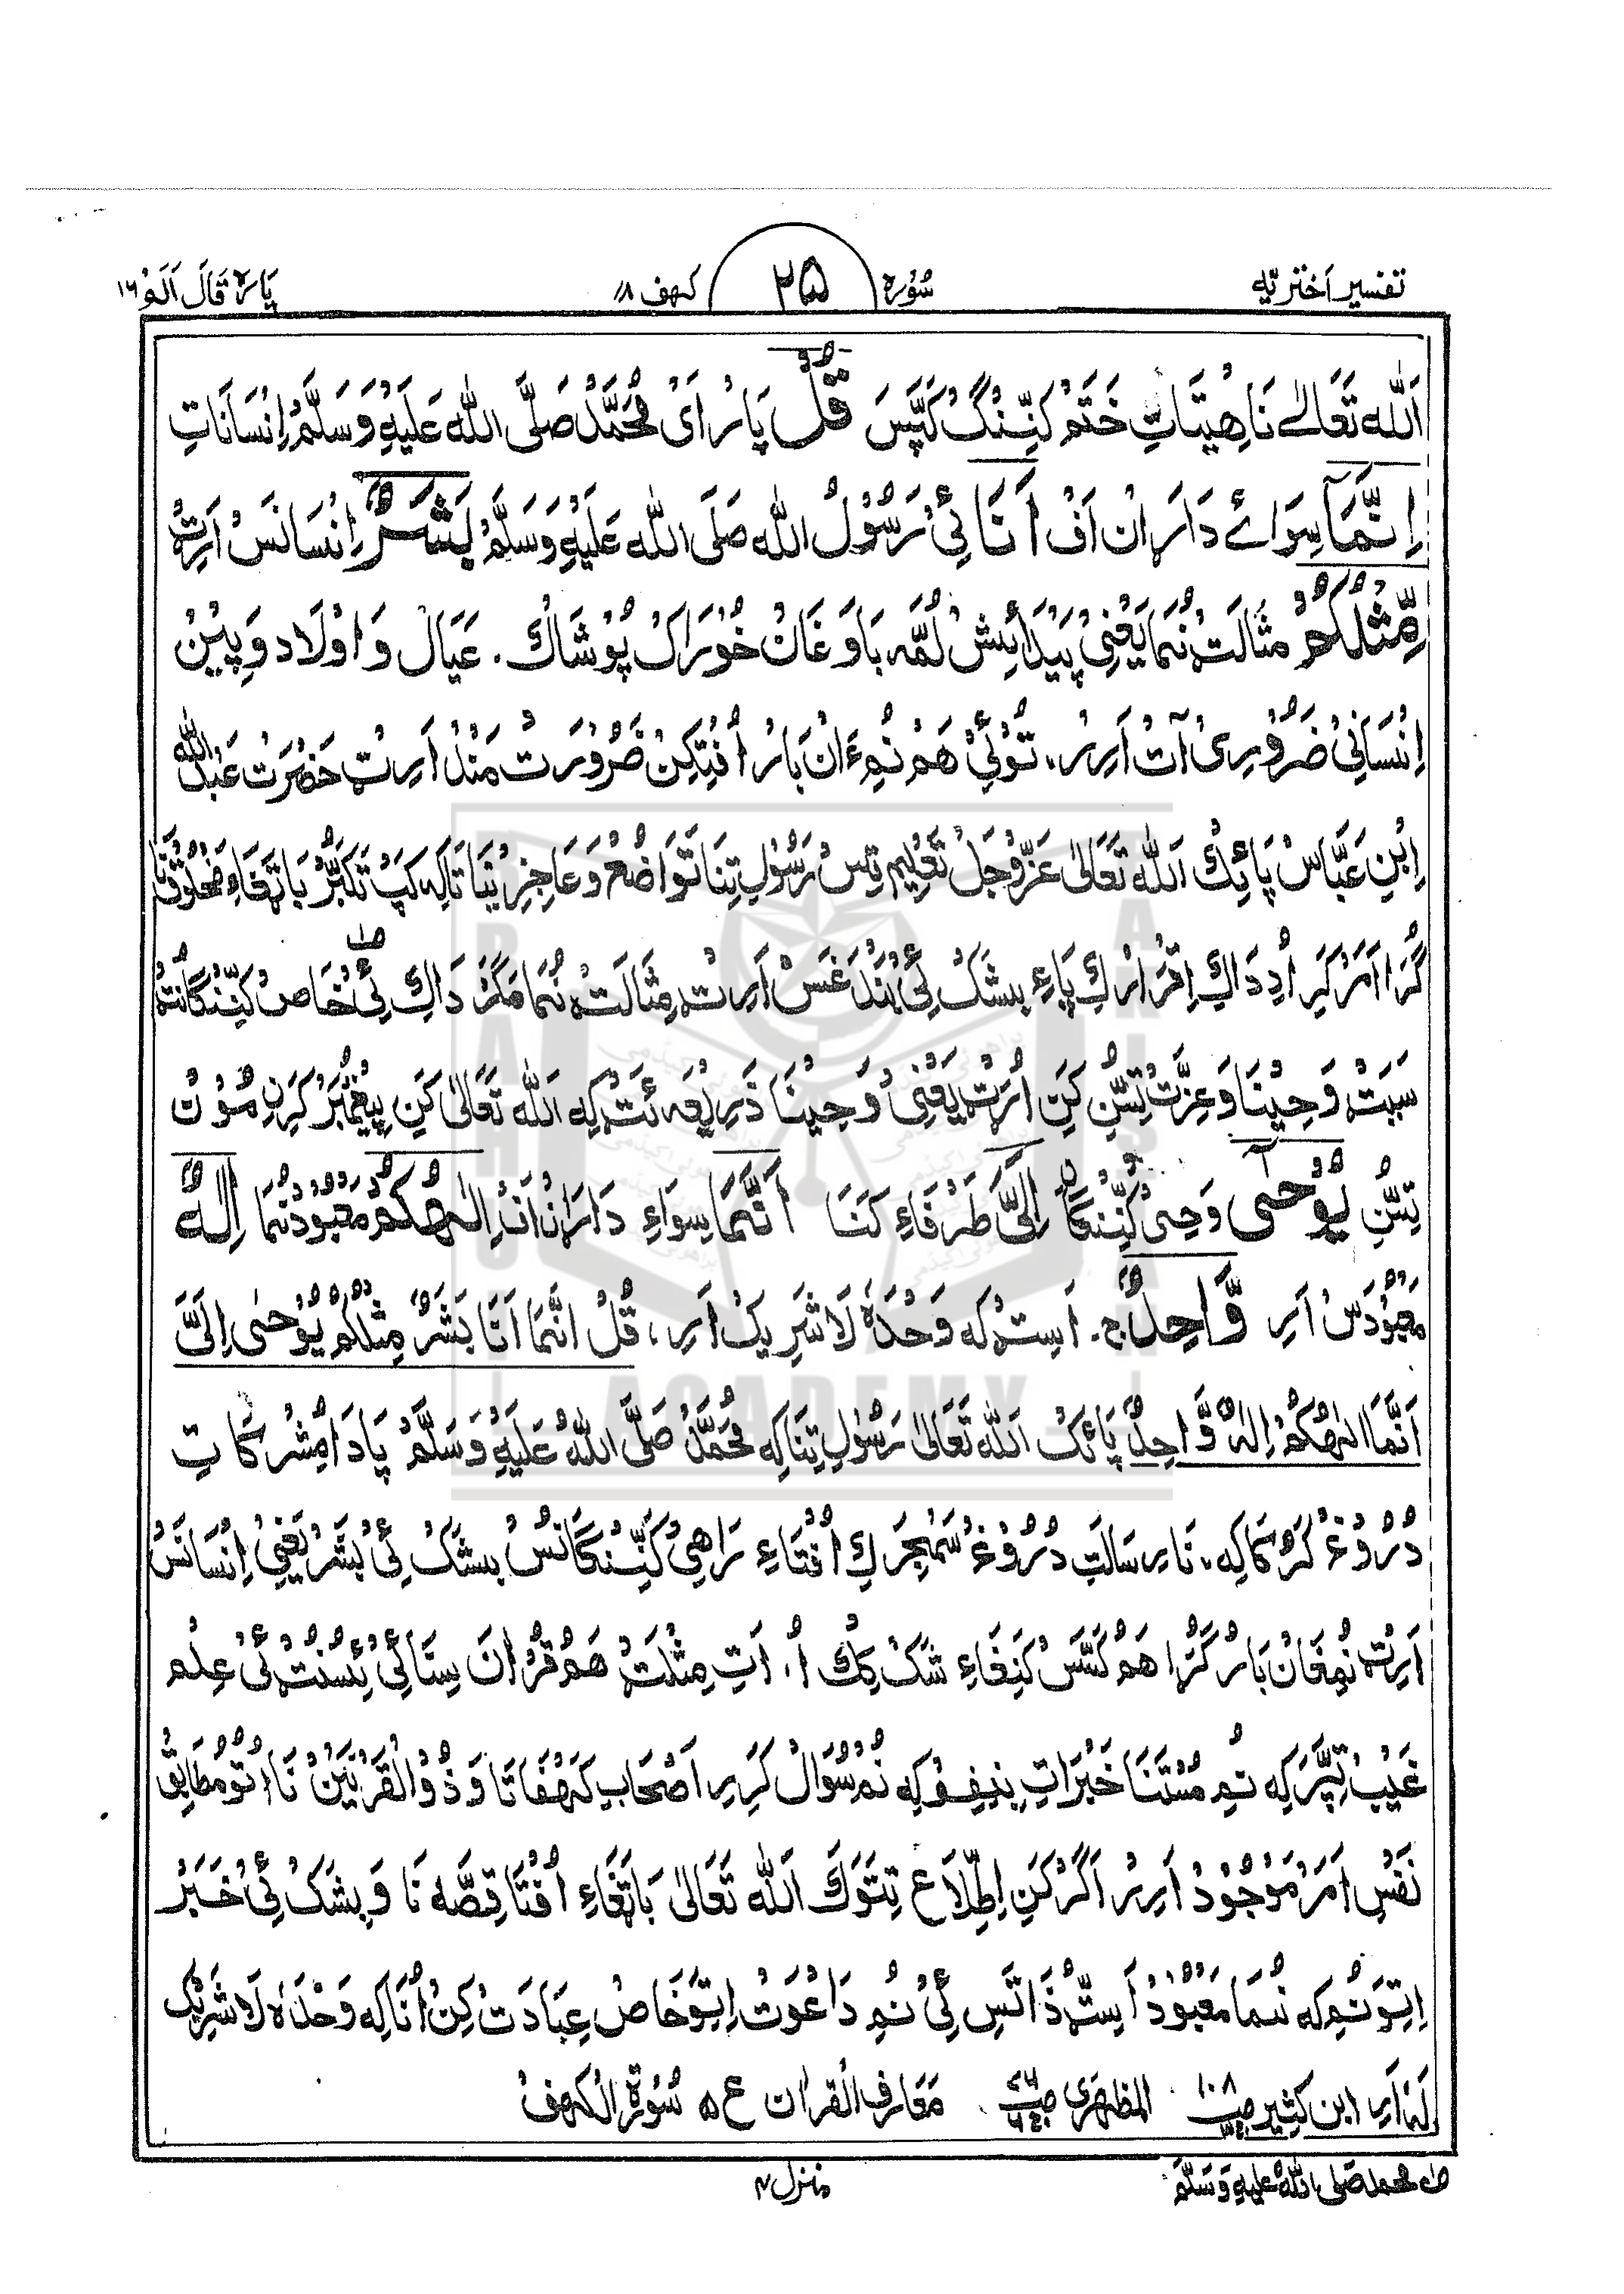 تفسیر اَختَریّه
سُوْرہ ۲۵ کہف ۱۸
پارہ قَالَ اَلَمْ ۱۶
اَللّٰہ تَعَالےٰ نَا ھِیتَاتِ خَتَمْ کَنِّنگ کَپَّسَ قُلْ پَارْ اَیْ مُحَمَّدْ صَلَّی اللّٰہ عَلَیْہِ وَسَلَّمْ اِنْسَانَاتِ
اِنَّمَآ سِوَاءِ دَارَانْ اَفْ اَنَا ئِیْ رَسُوْلُ اللّٰہ صَلَی اللّٰہ عَلَیْہِ وَسَلَّمْ بَشَرٌ اِنْسَانَسْ اَرِٹْ
مِّثْلُکُمْ مثَالَتْ نُمَا یَعْنِیْ پَیْدَائِشْ لُمَّہ بَاوَغَانْ خُوْرَاکْ پُوْشَاکْ۔ عَیَالْ وَ اوْلَاد وَپِیْنْ
اِنْسَانِیْ ضَرُوْرِیْ آتْ اَرِرْ۔ تُوْلَیْ ھَمْ نُمْءَانْ بَارْ اُفْتِکِنْ ضَرُوْرَتْ مَنْدْ اَرِٹْ حَضْرَتْ عَبْدُاللّٰہ
اِبْنِ عَبَّاسْ پَائِکْ اَللّٰہ تَعَالیٰ عَزَّوَجَلْ تَعْلِیم تِسْ رَسُوْلِ تِنَا تَوَاضُعْ وَ عَاجِزِیْ نَا تَاکِہ کَپْ تَکَبُّرْ بَاتِغَاءِ مَخْلُوْقْ نَا
گُڑَا اَمَرْ کَرِ اُدِ دَاکِ اِقْرَارْ کِ پَاءِ بیشَکْ ئِیْ بَنْدَغَسْ اَرِٹْ مِثَالَتْ نُمَا مَگَرْ دَاکِ ئِیْ خَاصْ کَنِّنگَانُٹْ
سَبَبْ وَحِیْنَا وَ عِزَّتْ تِسُّنِ کَنِ اُرِٹْ یَعْنِیْ وَحِیْنَا ذَرِیْعَہ ئَٹْ کِہ اَللّٰہ تَعَالیٰ کَنِ پِیْغَمْبَرْ کَرِنِ مُوْنْ
تِسُّنِ یُوْحٰی وَحِیْ کَنِّنْگَا اِلَیَّ طَرْفَاءِ کَنَا اَنَّمَا سِوَاءِ دَارَانْ اَفْ اِلٰہُکُمْ مَعْبُوْدْ نُمَا اِلٰہٌ
مَعْبُوْدَسْ اَرِ وَّاحِدٌ ج۔ اَسِٹ کہ وَحْدَہٗ لَاشَرِیک اَرِ، قُلْ اِنَّمَا اَنَا بَشَرٌ مِثْلُکُمْ یُوْحٰی اِلَیَّ
اَنَّمَا اِلٰہُکُمْ اِلٰہٌ وَّاحِدٌ پَائِکْ اَللّٰہ تَعَالیٰ رَسُوْلِ تِنَا کِہ مُحَمَّدْ صَلَّی اللّٰہُ عَلَیْہِ وَسَلَّمْ پَا دَا مُشْرِکَاتِ
دُرُوْغْ کَرْ کَا کِہ، نَا رِسَالَتِ دُرُوْغْ سَمْجَرِکِ اُفْتَاءِ رَاھِیْ کَنِّنْگَانُسْ بیشَکْ ئِیْ بَشَرْ یَعْنِیْ اِنْسَانَسْ
اَرِٹْ نُمِغَانْ بَارْ گُڑَا ھَمْ کَسَّسْ کَنِغَاءِ شَکْ کِکْ اُ، اَتِ مِثْلَتْ ھَمْ قُرْاٰنَ سِنَائِیْ ئِسُنُٹْ ئِیْ عِلْم
غَیْبْ تِپَّرَ کِہ نُمِ مُسْتَنَا خَبَرَاتِ بِنِفِوْ کِہ نُمْ سُوَالْ کَرِرِ اَصْحَابِ کَہْفَاتَا وَ ذُوْالْقَرْنَیْنْ نَا اُتُوْ مُطَابِقْ
نَفْسِ اَمَرْ مَوْجُوْدْ اَرِرْ اَگَرْ کَنِ اِطِّلَاعْ تِتَوَکَ اَللّٰہ تَعَالیٰ بَاتِغَاءِ اُفْتَا قِصَّہ نَا وَ بِشَکْ ئِیْ خَبَرْ
اِتِوَ نُمِ کِہ نُمَا مَعْبُوْدْ اَسِٹْ ذَاتَسْ ئِیْ نُمِ دَعْوَتْ اِتِوَ خَاصْ عِبَادَتْ کِنْ اُنَا کِہ وَحْدَہٗ لَاشَرِیْک
لَہٗ اَرِ۔ ابن کثیر ص ۱۰۸ المظہری ص مَعَارِفُ الْقُرْاٰن ع ۵ سُوْرَۃُ الْکَہْف
محمد صَلَی اللّٰہُ عَلَیْہِ وَسَلَّمْ
منزل ۴
BRAHUI ACADEMY